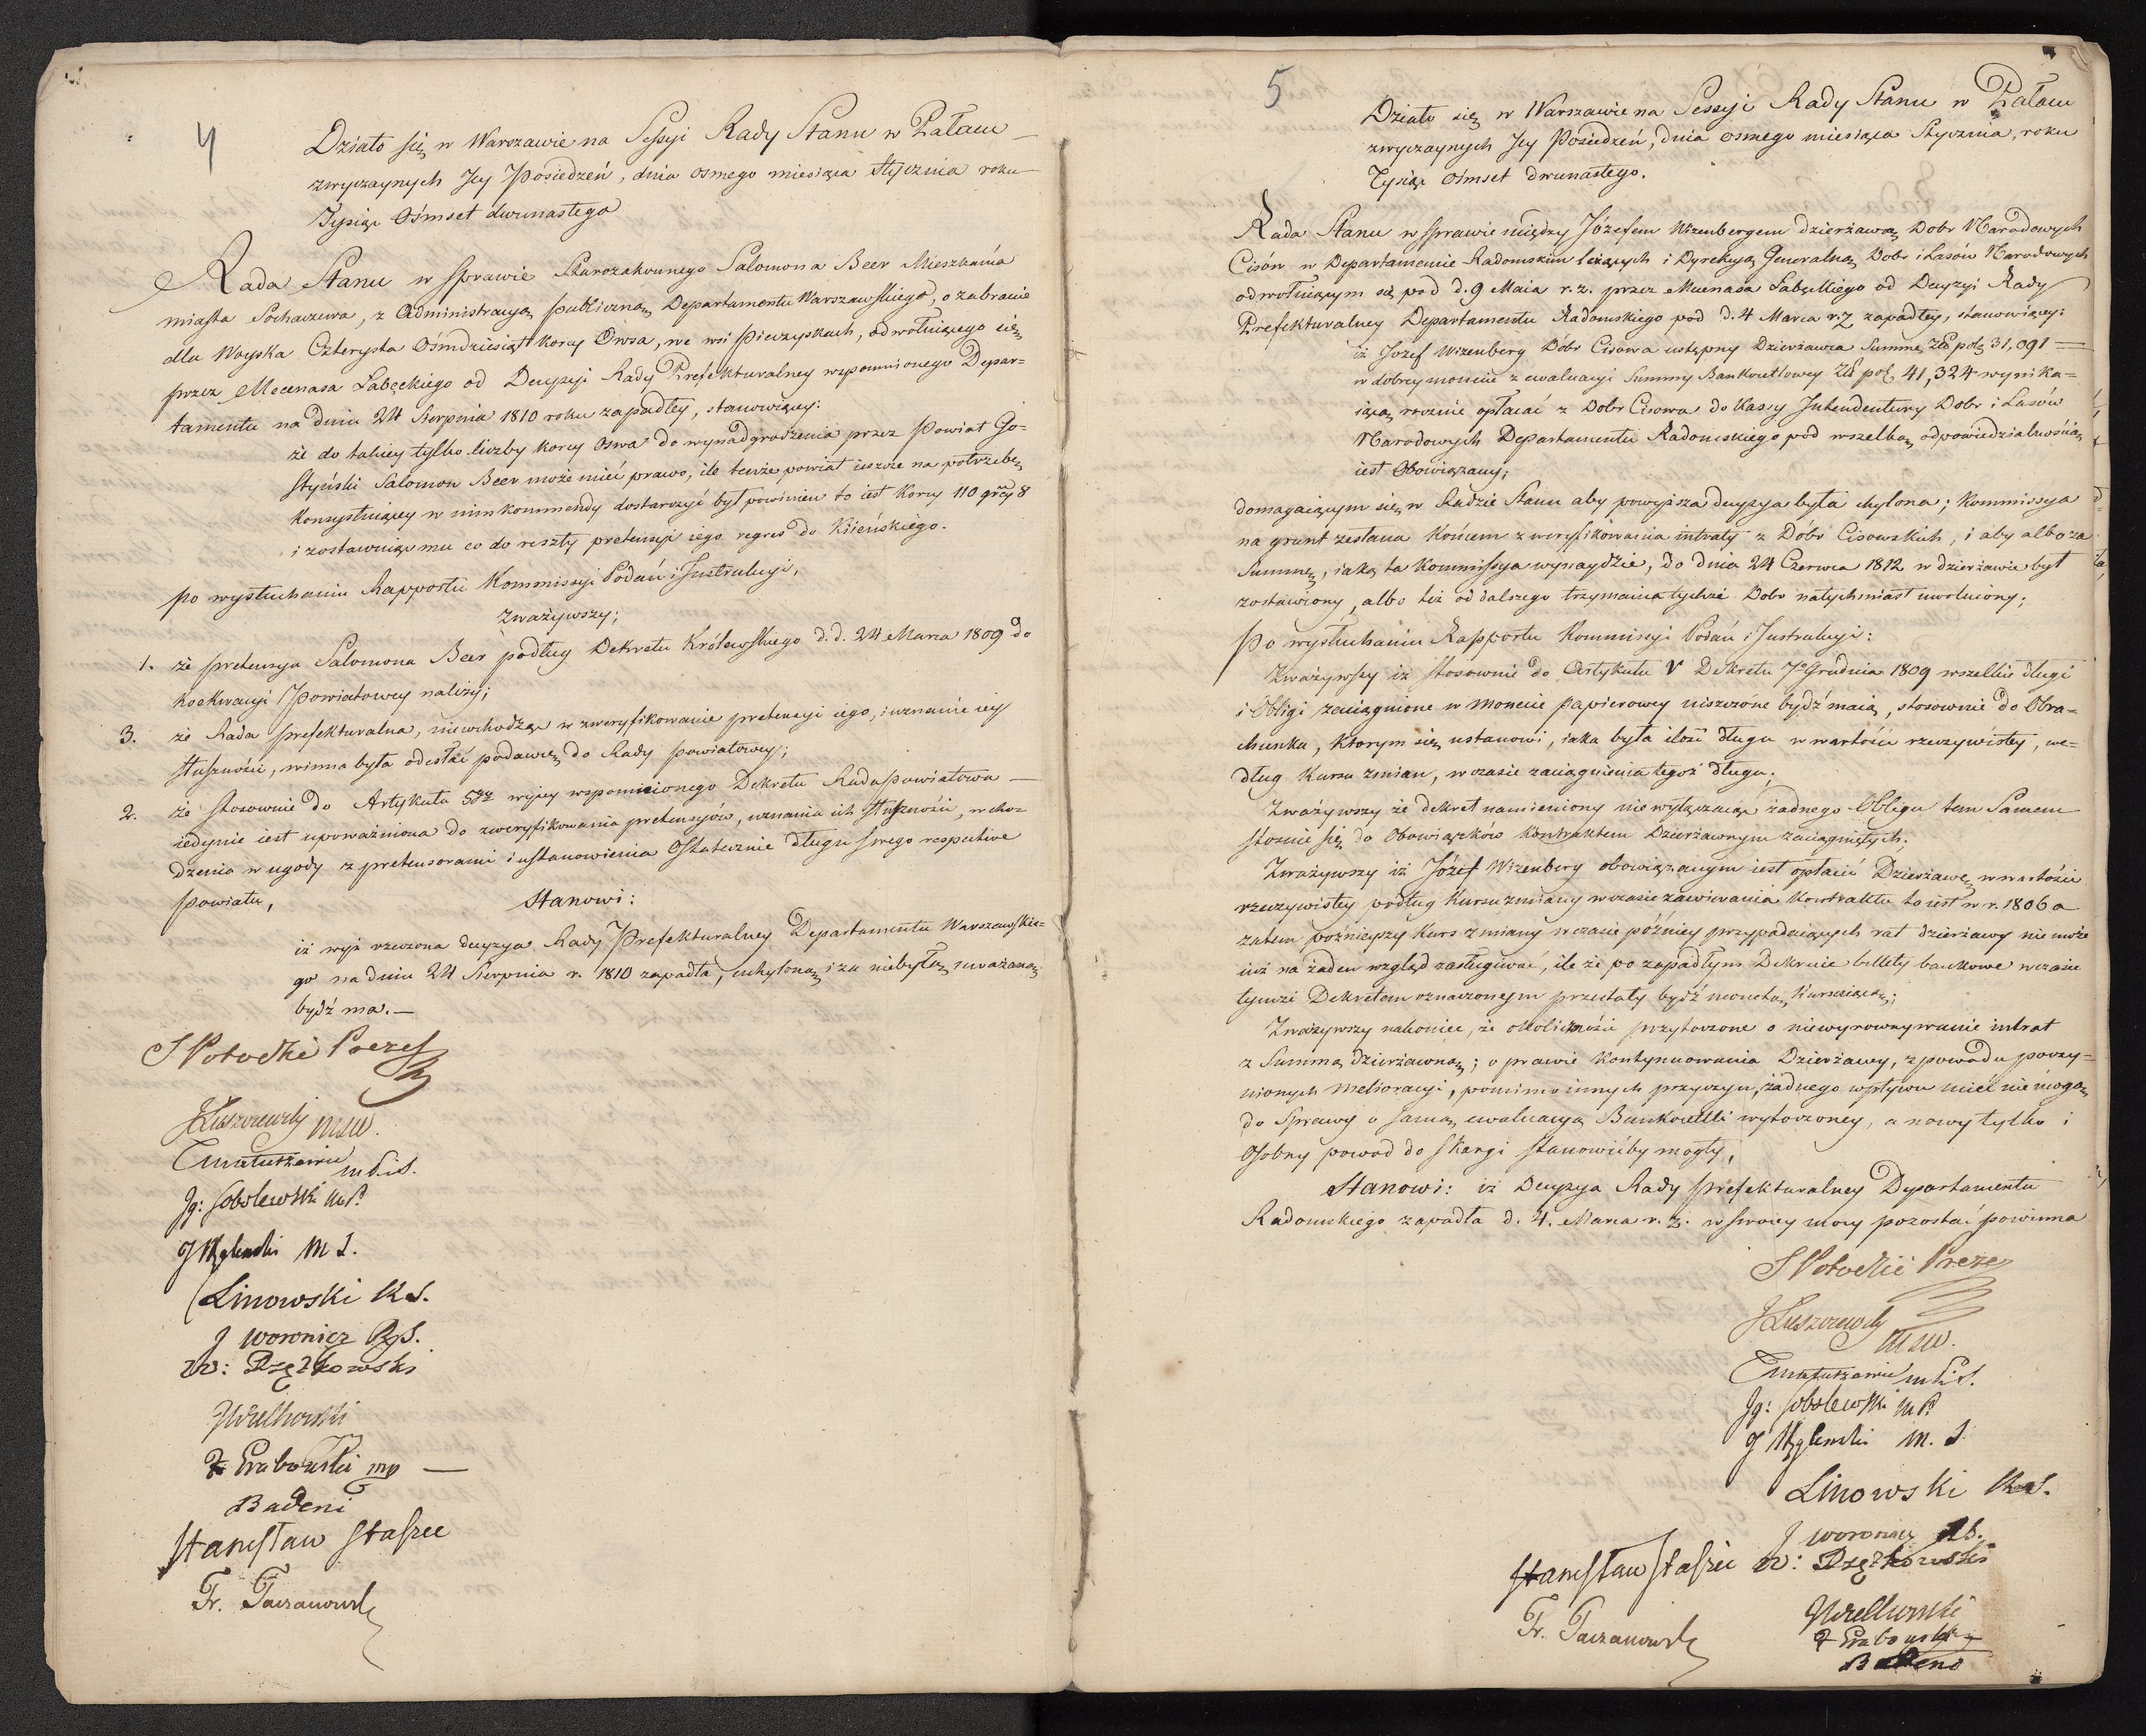 4
Działo się w Warszawie na Sessyi Rady Stanu w Pałacu
zwyczaynych Jey Posiedzeń, dnia osmego miesiąca Stycznia roku
Tysiąc Ośmset dwunastego
Rada Stanu w Sprawie Starozakonnego Salomona Beer Mieszkańca
miasta Sochaczewa, z Administracyą publiczną Departamentu Warszawskiego, o zabranie
dla Woyska Czterysta Ośmdziesiąt korcy Owsa, we wsi Pieczyskach, odwołuiącego się
przez Mecenasa Łabęckiego od Decyzyi Rady Prefekturalney wspomnionego Depar=
tamentu na dniu 24 Sierpnia 1810 roku zapadłey, stanowiącey:
że do takiey tylko liczby korcy Owsa do wynadgrodzenia przez Powiat Go=
styński Salomon Beer może mieć prawo, ile tenże powiat ieszcze na potrzebę
konsystuiącey w nim kommendy dostarczyć był powinien to iest korcy 110 grcy 8
i zostawuiąc mu co do reszty pretensyi iego regres do Kiieńskiego.
po wysłuchaniu Rapportu Kommissyi Podań i Instrukcyi,
zważywszy;
1. że pretensya Salomona Beer podług Dekretu Królewskiego d.d. 24 Marca 1809 do
koekwacyi Powiatowey należy;
3. że Rada prefekturalna, niewchodząc w zweryfikowanie pretensyi iego, i uznanie iey
słuszności, winna była odesłać podawcę do Rady powiatowey;
2. że stosownie do Artykułu 5go wyżey wspomnionego Dekretu Rada powiatowa
iedynie iest upoważniona do zweryfikowania pretensyów, uznania ich słuszności, wcho=
dzenia w ugody z pretensorami i ustanowienia Ostatecznie długu swego respective
powiatu,
Stanowi:
iż wyż rzeczona decyzya Rady Prefekturalney Departamentu Warszawskie=
go na dniu 24 Sierpnia r. 1810 zapadła, uchyloną i za niebyłą uważaną
bydź ma.
S Potocki Prezes
J Łuszczewski MSW.
T Matuszewic
Ig: Sobolewski M.P.
J Węgleński M S.
Linowski R.S.
J Woronicz R.S.
W: Dzętkowski
J Wielhorski
F Grabowski mp
Badeni
Stanisław Staszic
Fr. Taczanowski
5
Działo się w Warszawie na Sessyi Rady Stanu w Pałacu
zwyczaynych Jey Posiedzeń, dnia osmego miesiąca Stycznia, roku
Tysiąc Ośmset dwunastego.
Rada Stanu w sprawie między Józefem Wizenbergem dzierżawcą Dobr Narodowych
Cisów w Departamencie Radomskim leżących i Dyrekcyą Generalną Dobr i Lasów Narodowych
odwołuiącym się pod d. 9 Maia r.z. przez Mecenasa Łabęckiego od Decyzyi Rady
Prefekturalney Departamentu Radomskiego pod d. 4 Marca r.z zapadłey, stanowiącey:
iż Jozef Wizenberg Dobr Cisowa ustępny Dzierżawca Summę Złł pol. 31,091
w dobrey monecie z ewaluacyi Summy Bankocetlowey Złł pol. 41,324 wynika=
iącą, rocznie opłacać z Dobr Cisowa do kassy Intendentury Dobr i Lasów
Narodowych Departamentu Radomskiego pod wszelką odpowiedzialnością
iest Obowiązany;
domagaiącym się w Radzie Stanu aby powyższa decyzya była uchylona; Kommissya
na grunt zesłana końcem zweryfikowania intraty z Dóbr Cisowskich, i aby albo za
Summę, iaką ta Kommissya wynaydzie, do dnia 24 Czerwca 1812 w dzierżawie był
zostawiony, albo też od dalszego trzymania tychże Dobr natychmiast uwolniony;
Po wysłuchaniu Rapportu Kommissyi Podań i Instrukcyi:
Zważywszy iż stosownie do Artykułu V Dekretu 7o Grudnia 1809 wszelkie długi
i Obligi zaciągnione w monecie papierowey uiszczone bydź maią, stosownie do Obra=
chunku, którym się ustanowi, iaka była ilość długu w wartości rzeczywistey, we=
dług kursu zmian, w czasie zaciągnienia tegoż długu;
Zważywszy że dekret namieniony nie wyłączaiąc żadnego Obligu tem Samem
stosuie się do Obowiązków kontraktem Dzierżawnym zaciągniętych.
Zważywszy iż Józef Wizenberg obowiązanym iest opłacić Dzierżawę w wartości
rzeczywistey podług kursu zmiany w czasie zawierania kontraktu to iest w r. 1806 a
zatem poźnieyszy kurs zmiany w czasie późniey przypadaiących rat dzierżawy nie może
iuż na żaden wzgląd zasługiwać, ile że po zapadłym Dekrecie bilety bankowe w czasie
tymże Dekretem oznaczonym przestały bydź monetą kursuiącą;
Zważywszy nakoniec, że okoliczności przytoczone o niewyrownywanie intrat
z Summą dzierżawną; o prawie kontynuowania Dzierżawy, z powodu poczy=
nionych melioracyi, pomimo innych przyczyn, żadnego wpływu mieć nie mogą
do Sprawy o samą ewaluacyą Bankocetli wytoczoney, a nowy tylko i
osobny powod do skargi stanowićby mogły,
Stanowi: iż Decyzya Rady prefekturalney Departamentu
Radomskiego zapadła d. 4. Marca r. z. w swoiey mocy pozostać powinna
S Potocki Prezes
J Łuszczewski
MSW.
T Matuszewic
Ig: Sobolewski M.P.
J Węgleński M. S.
Linowski R.S.
J Woronicz R.S.
Stanisław Staszic W: Dzętkowski
J Wielhorski
Fr. Taczanowski F Grabowski
Badeni